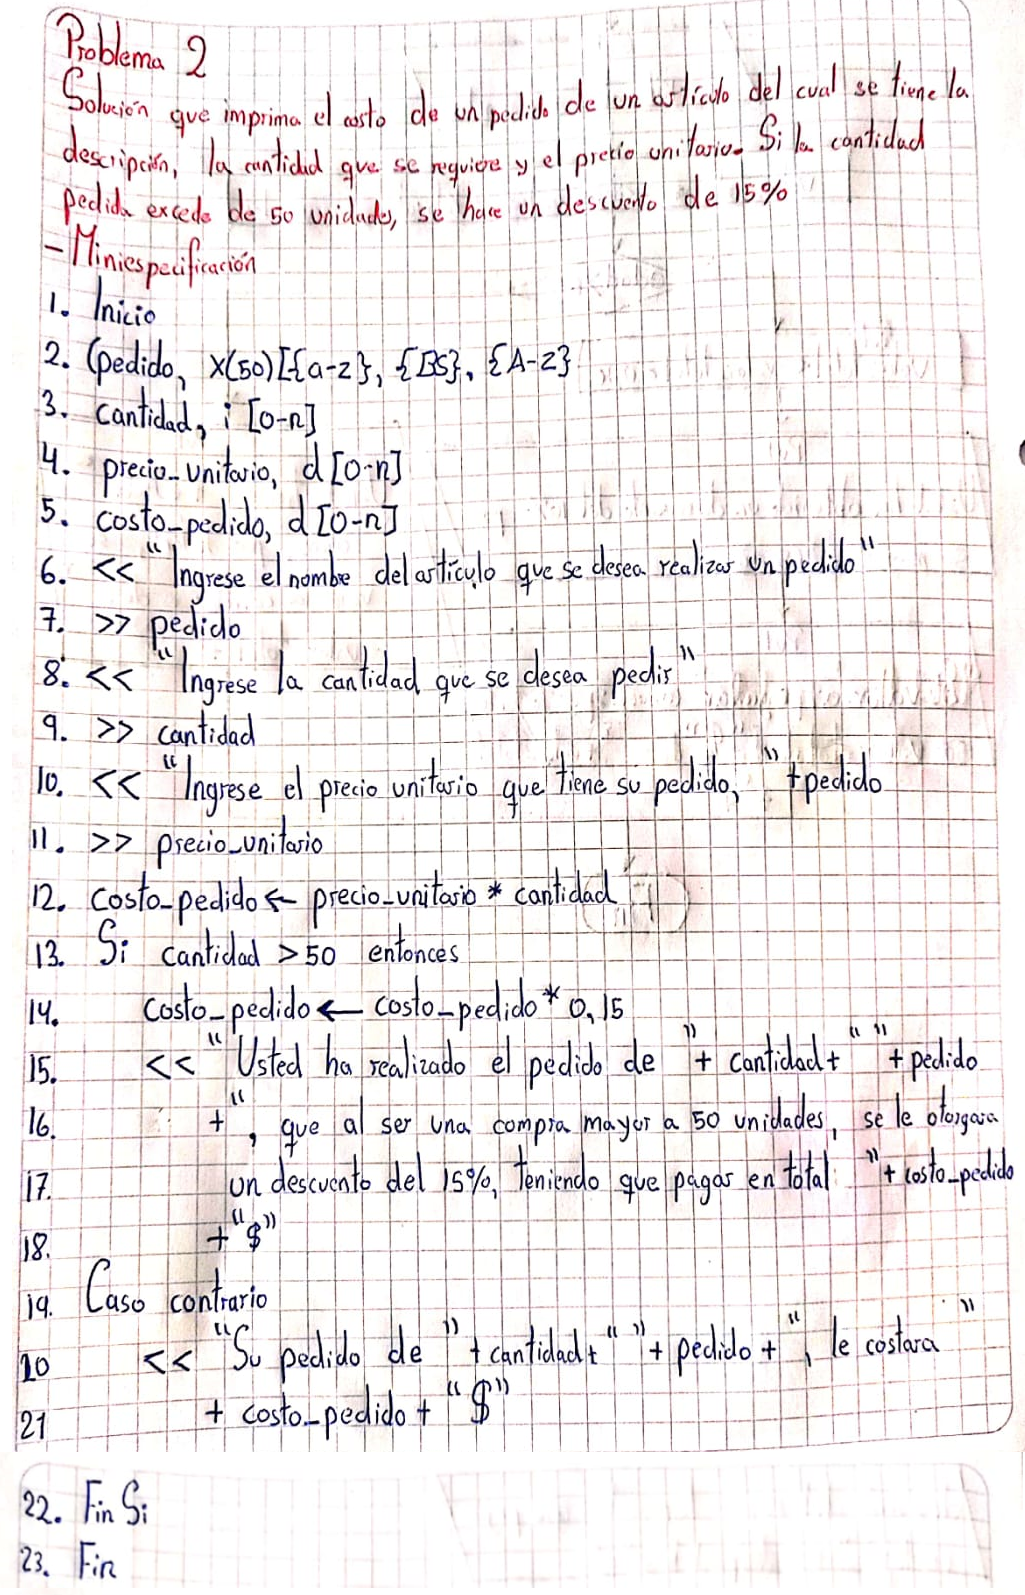 Problema 2
Solución que imprima el costo de un pedido de un artículo del cual se tiene la
descripción, la cantidad que se requiere y el precio unitario. Si la cantidad
pedida excede de 50 unidades, se hace un descuento de 15%
- Miniespecificación
1. Inicio
2. (pedido, x(50)[{a-z}, {BS}, {A-Z}
3. cantidad, i [0-n]
4. precio_unitario, d [0-n]
5. costo_pedido, d [0-n]
6. << "Ingrese el nombre del artículo que se desea realizar un pedido"
7. >> pedido
8. << "Ingrese la cantidad que se desea pedir"
9. >> cantidad
10. << "Ingrese el precio unitario que tiene su pedido, " + pedido
11. >> precio_unitario
12. costo_pedido ← precio_unitario * cantidad
13. Si cantidad > 50 entonces
14. costo_pedido ← costo_pedido * 0,15
15. << "Usted ha realizado el pedido de " + cantidad + " " + pedido
16. + ", que al ser una compra mayor a 50 unidades, se le otorgara
17. un descuento del 15%, teniendo que pagar en total " + costo_pedido
18. + "$"
19. Caso contrario
20 << "Su pedido de " + cantidad + " " + pedido + ", le costara "
21 + costo_pedido + "$"
22. Fin Si
23. Fin